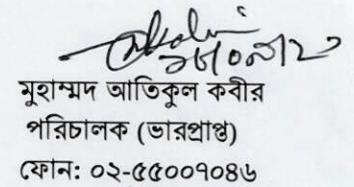 মুহাম্মদ আতিকুল কবীর
পরিচালক (ভারপ্রাপ্ত)
ফোন: ০২-৫৫০০৭০৪৬